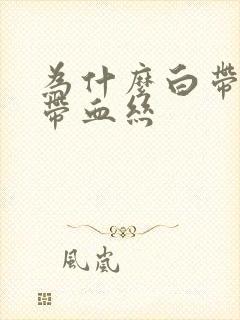 為什麼白帶
帶血絲
風嵐